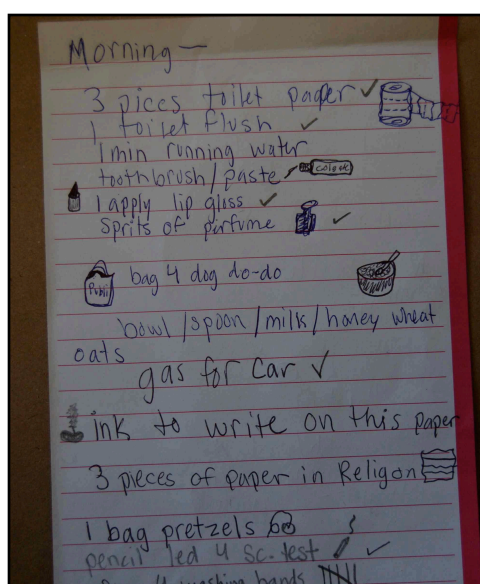 Morning—
3 pices toilet paper ✓
1 toilet flush ✓
1 min running water
toothbrush/paste
1 apply lip gloss ✓
Sprits of perfume ✓
Publi
bag 4 dog do-do
bowl/spoon/milk/honey wheat
oats
gas for car ✓
ink to write on this paper
3 pieces of paper in Religon
1 bag pretzels
pencil led 4 sc. test ✓
washing hands